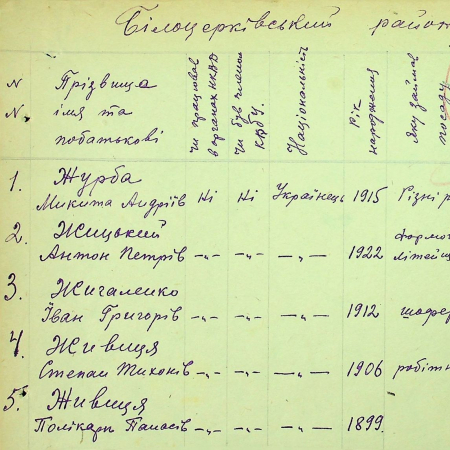 Білоцерківський район
N N. Прізвище імя та побатькові
чи працював в органах НКВД
чи був членом КПбУ.
Національність
Рік народження
Яку займав посаду
1. Журба
Микита Андріїв Ні Ні Українець 1915 Різні р
2. Жицький формо
Антон Петрів —„— —„— —„— 1922 літейщ
3. Жигаленко
Іван Григорів —„— —„— —„— 1912 шофер
4. Живиця
Степан Тихонів —„— —„— —„— 1906 робітн
5. Живиця
Полікарп Панасів —„— —„— —„— 1899